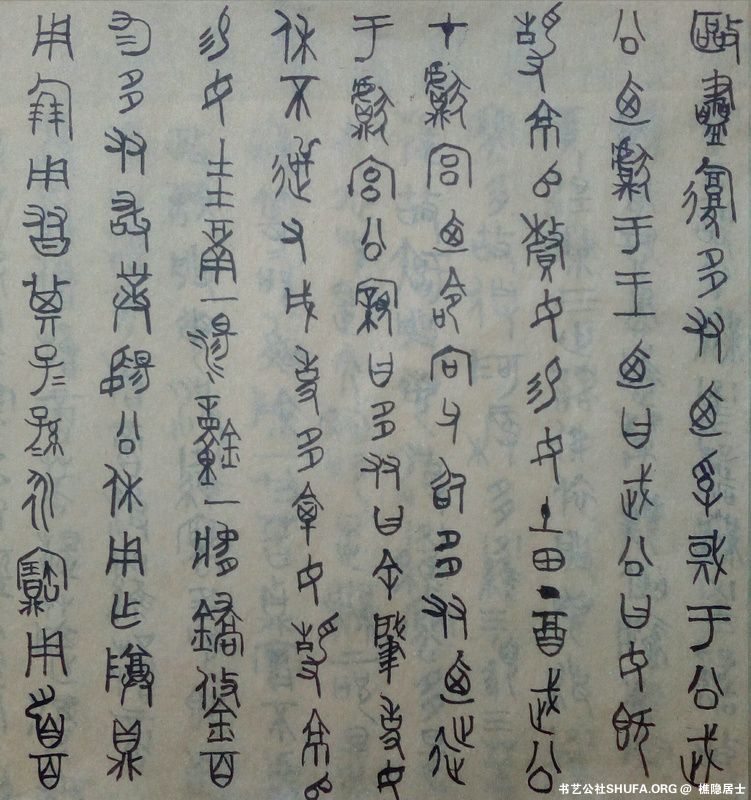 敺盡復多友廼孚馘于公武
公廼獻于王廼曰武公曰女既
靜京𠂤釐女易女土田丁酉武公
才獻宮廼命向父召多友廼徙
于獻宮公親曰多友曰余肇事女
休不逆又成事多禽女靜京𠂤
易女圭瓚一湯鐘一肆鐈鋚百
勻多友敢對揚公休用乍尊鼎
用倗用友其子子孫孫永寶用
书艺公社SHUFA.ORG @ 樵隐居士